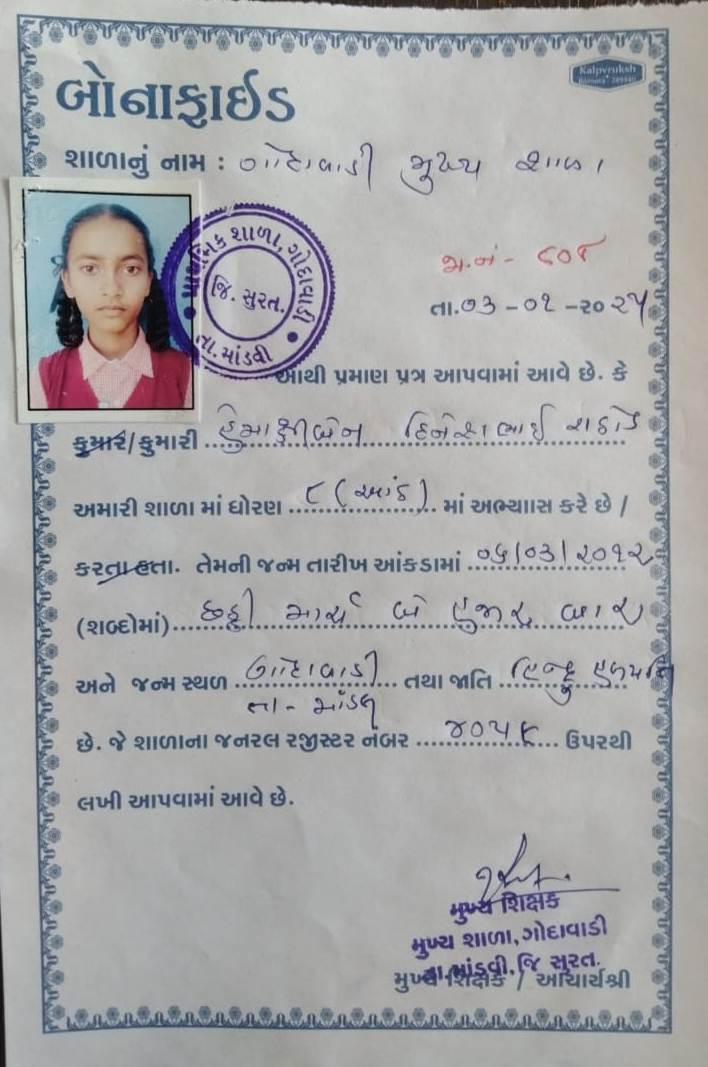 Kalpvruksh
બોનાફાઈડ
શાળાનું નામ : ગોદાવાડી મુખ્ય શાળા
પ્રાથમિક શાળા, ગોદાવાડી
જિ. સુરત.
તા. માંડવી
જા.નં - ૮૦૪
તા.૦૩ -૦૧ -૨૦૨૫
આથી પ્રમાણ પત્ર આપવામાં આવે છે. કે
કુમાર/કુમારી હેમાક્ષીબેન દિનેશભાઈ રાઠોડ
અમારી શાળા માં ધોરણ ૮ (આઠ) માં અભ્યાસ કરે છે /
કરતા હતા. તેમની જન્મ તારીખ આંકડામાં ૦૬/૦૩/૨૦૧૨
(શબ્દોમાં) છઠ્ઠી માર્ચ બે હજાર બાર
અને જન્મ સ્થળ ગોદાવાડી તથા જાતિ હિન્દુ હળપતિ
તા - માંડવી
છે. જે શાળાના જનરલ રજીસ્ટર નંબર ૪૦૫૮ ઉપરથી
લખી આપવામાં આવે છે.
મુખ્ય શિક્ષક
મુખ્ય શાળા, ગોદાવાડી
તા.માંડવી. જિ સુરત.
મુખ્ય શિક્ષક / આચાર્યશ્રી